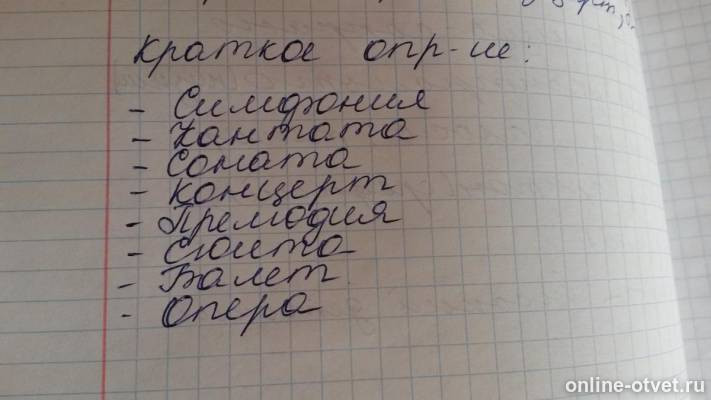 краткое опр-ие:
- Симфония
- Кантата
- Соната
- концерт
- Прелюдия
- Сюита
- Балет
- Опера
online-otvet.ru